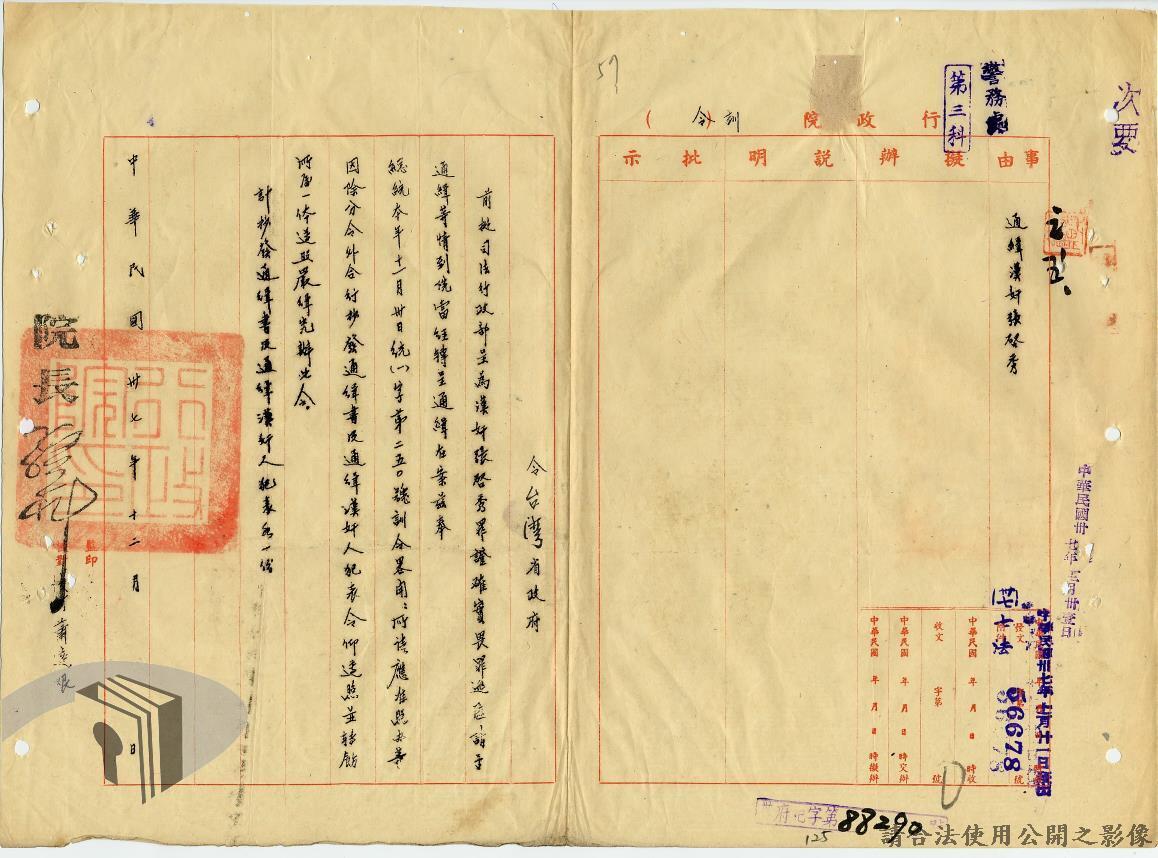 次要
警務處
第三科
行政院
訓令
事由
擬辦
說明
批示
通緝漢奸張啓秀
中華民國卅
中華民國卅七年十二月廿一日
(卅七)七法
56678
發文
附件
號
收文
字第
號
中華民國 年 月 日 時收
中華民國 年 月 日 時交辦
中華民國 年 月 日 時擬辦
府
字第88290
125
57
令台灣省政府
前據司法行政部呈為漢奸張啓秀罪證確實畏罪逃匿請予
通緝等情到院當經轉呈通緝在案茲奉
總統本年十一月卅日統(一)字第二五〇號訓令畧開:所請應准照辦等
因除分令外合行抄發通緝書及通緝漢奸人犯表令仰遵照並轉飭
所屬一体遵照嚴緝究辦此令。
計抄發通緝書及通緝漢奸人犯表各一份
中華民國卅七年十二月 日
院長
監印
請合法使用公開之影像